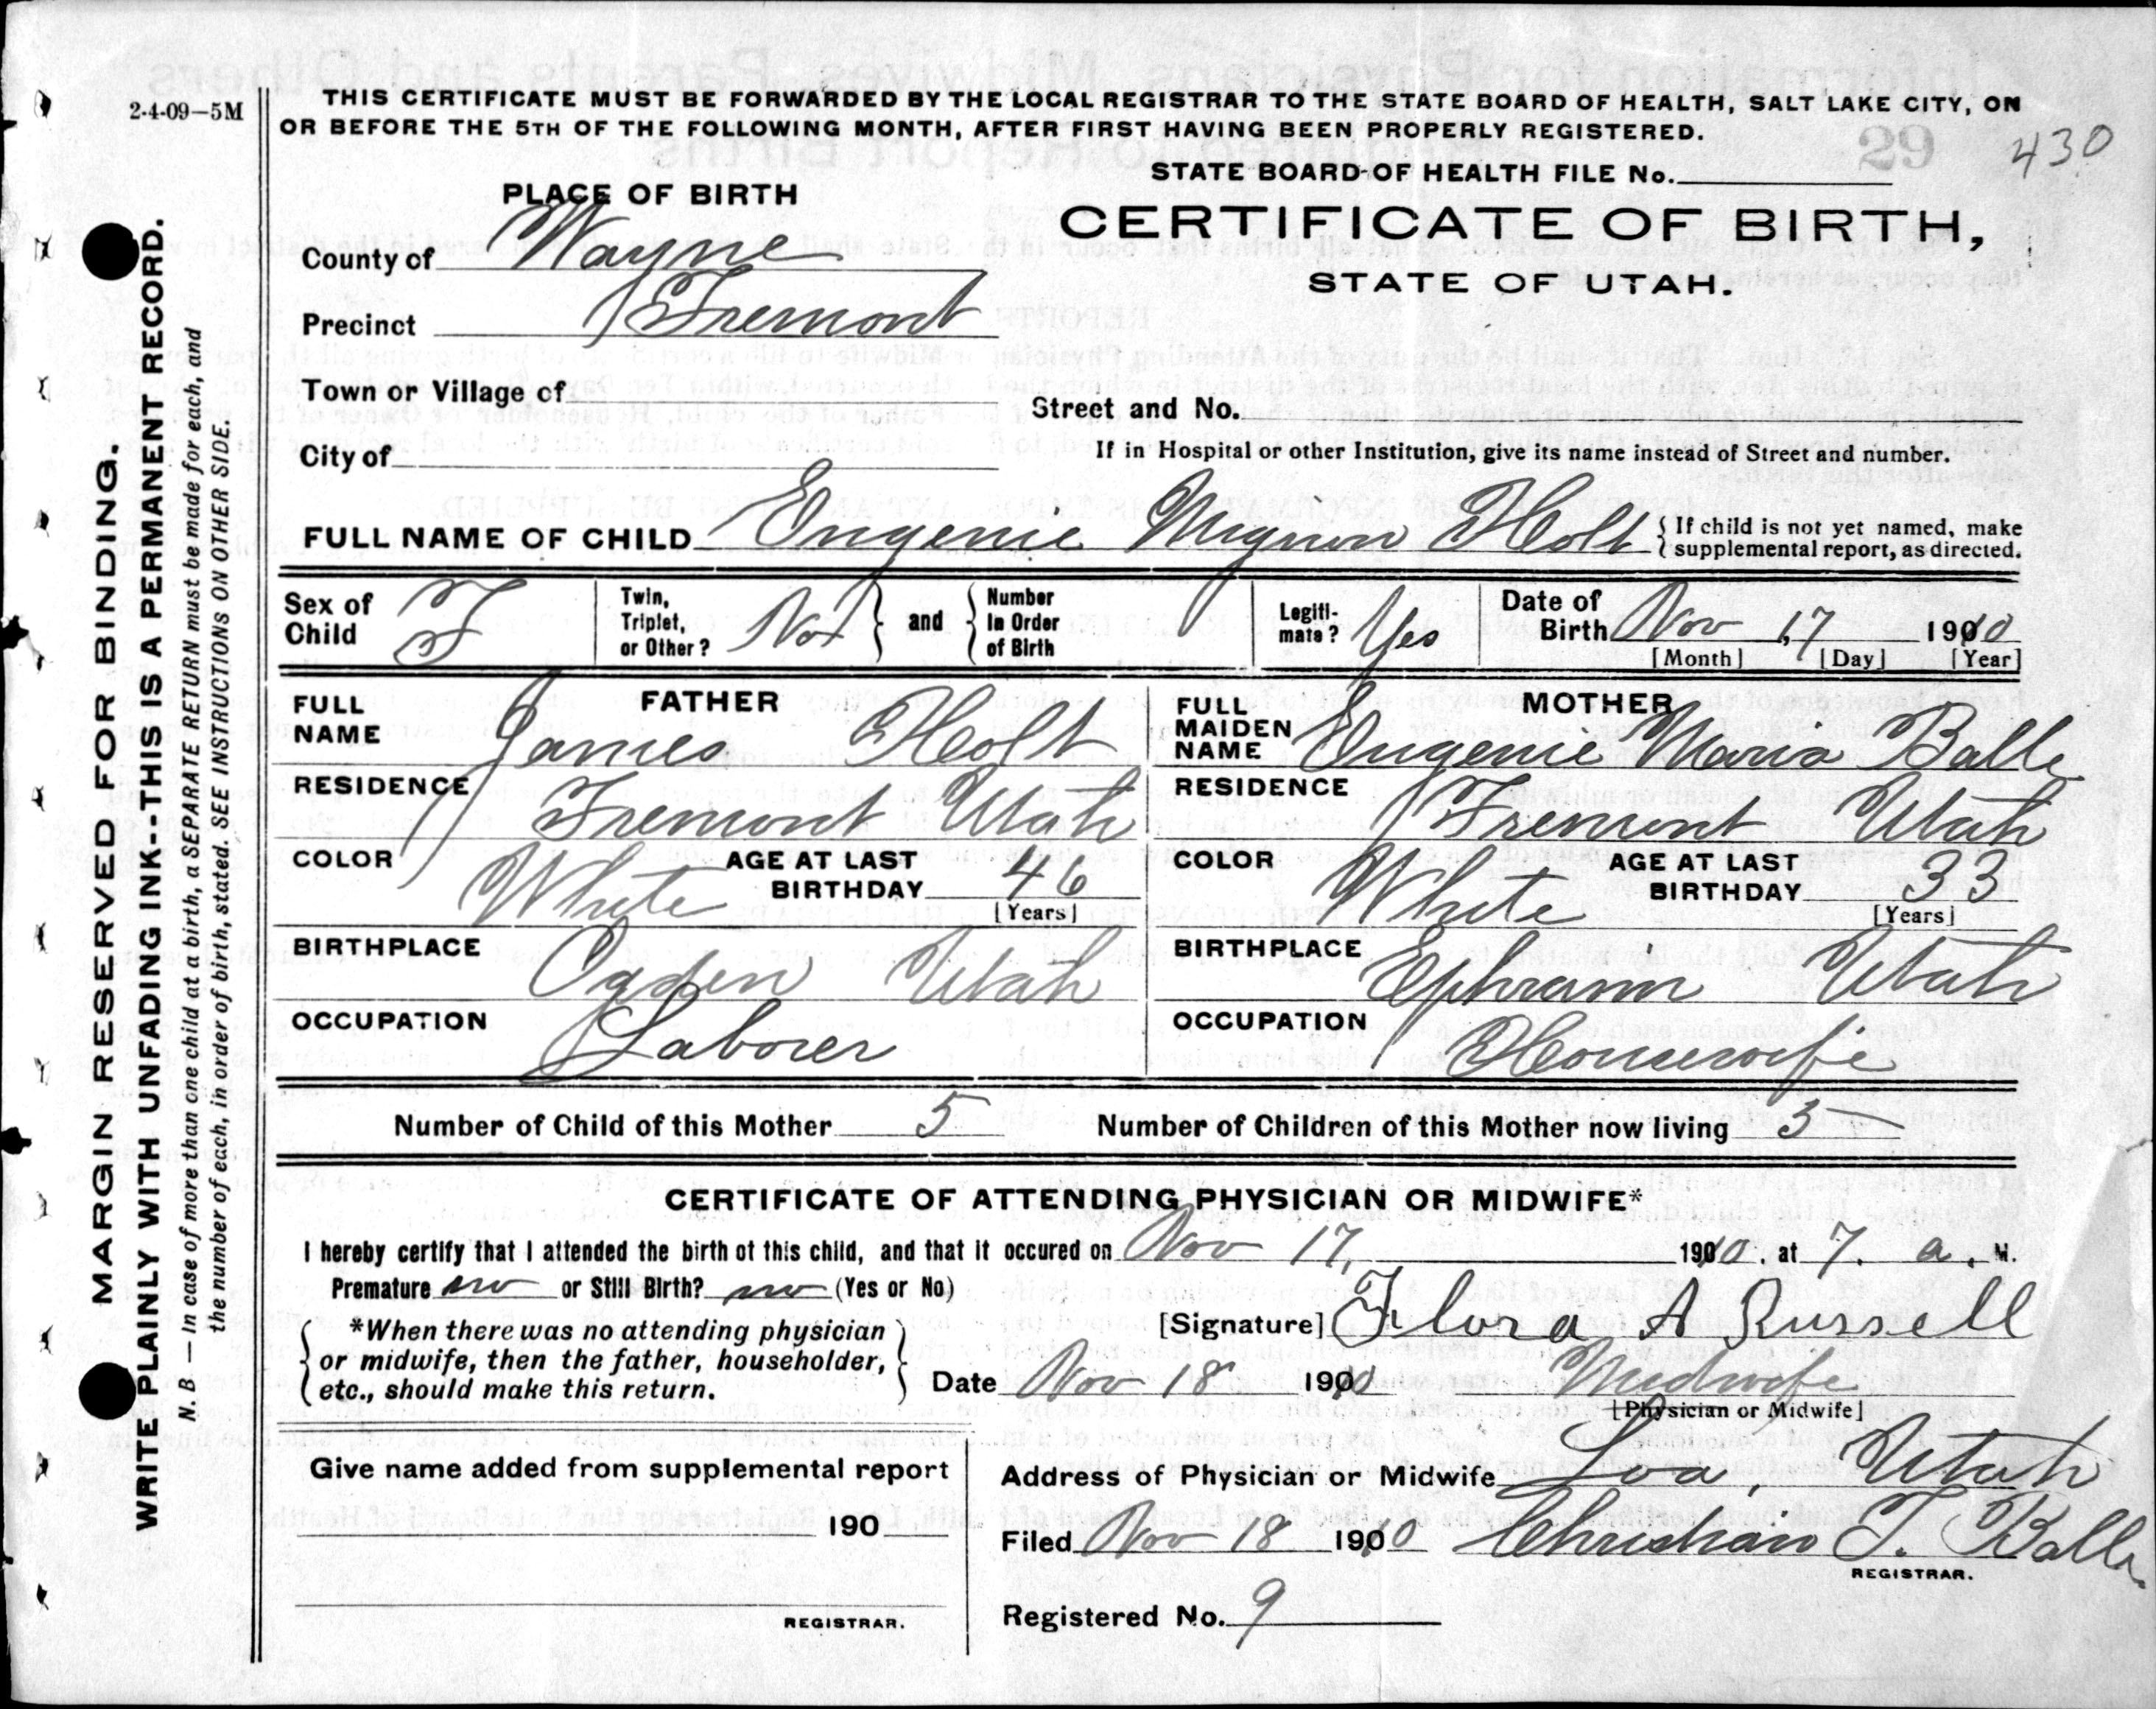 2-4-09—5M
THIS CERTIFICATE MUST BE FORWARDED BY THE LOCAL REGISTRAR TO THE STATE BOARD OF HEALTH, SALT LAKE CITY, ON
OR BEFORE THE 5TH OF THE FOLLOWING MONTH, AFTER FIRST HAVING BEEN PROPERLY REGISTERED.
29 430
STATE BOARD OF HEALTH FILE No.
PLACE OF BIRTH
CERTIFICATE OF BIRTH,
STATE OF UTAH.
County of Wayne
Precinct Fremont
Town or Village of
Street and No.
City of
If in Hospital or other Institution, give its name instead of Street and number.
FULL NAME OF CHILD Eugenie Mignon Holt { If child is not yet named, make
supplemental report, as directed.
Sex of Child F
Twin, Triplet, or Other? Not } and { Number In Order of Birth
Legitimate? Yes
Date of Birth Nov 17 1910
[Month] [Day] [Year]
FATHER
FULL NAME James Holt
RESIDENCE Fremont Utah
COLOR White AGE AT LAST BIRTHDAY 46
[Years]
BIRTHPLACE Ogden Utah
OCCUPATION Laborer
MOTHER
FULL MAIDEN NAME Eugenie Maria Balle
RESIDENCE Fremont Utah
COLOR White AGE AT LAST BIRTHDAY 33
[Years]
BIRTHPLACE Ephraim Utah
OCCUPATION Housewife
Number of Child of this Mother 5 Number of Children of this Mother now living 5
CERTIFICATE OF ATTENDING PHYSICIAN OR MIDWIFE*
I hereby certify that I attended the birth of this child, and that it occured on Nov 17, 1910. at 7. a. M.
Premature no or Still Birth? no (Yes or No)
*When there was no attending physician
or midwife, then the father, householder,
etc., should make this return.
[Signature] Flora A Russell
Date Nov 18 1910 Midwife
[Physician or Midwife]
Address of Physician or Midwife Loa, Utah
Give name added from supplemental report
190
REGISTRAR.
Filed Nov 18 1910 Christian T. Balle
REGISTRAR.
Registered No. 9
MARGIN RESERVED FOR BINDING.
WRITE PLAINLY WITH UNFADING INK--THIS IS A PERMANENT RECORD.
N. B.—In case of more than one child at a birth, a SEPARATE RETURN must be made for each, and
the number of each, in order of birth, stated. SEE INSTRUCTIONS ON OTHER SIDE.